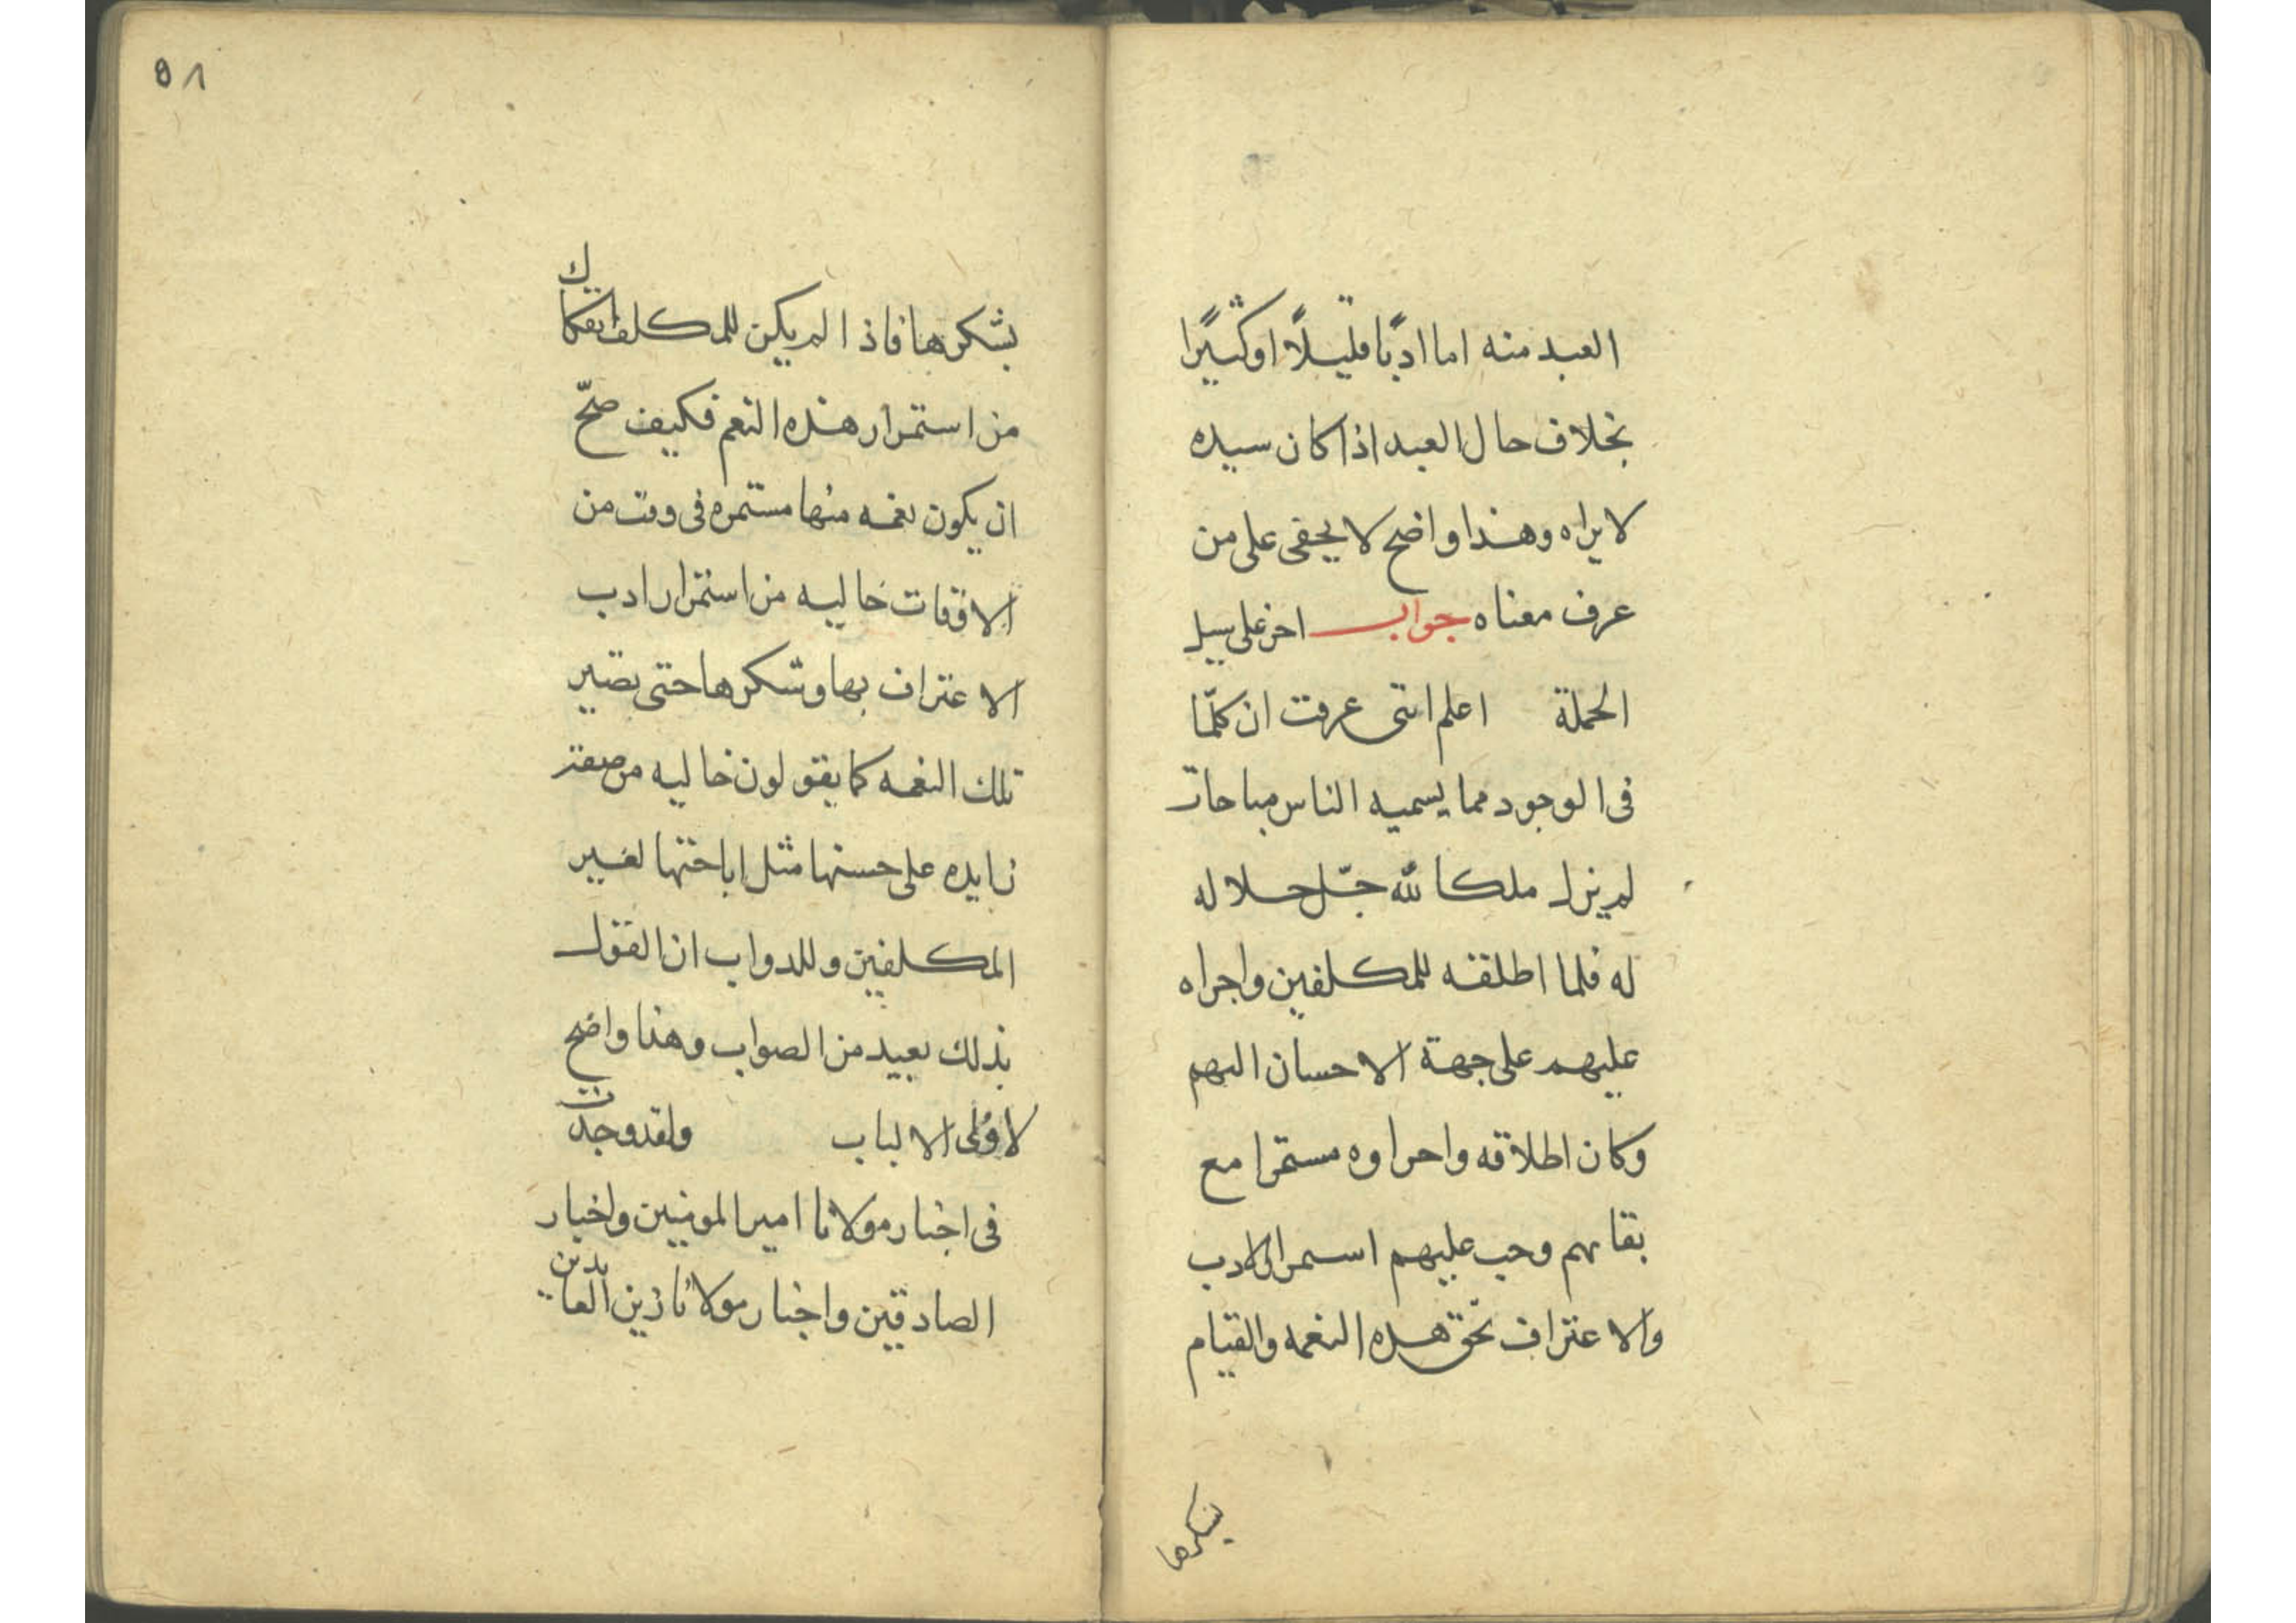 العبد منه اما ادبًا قليلًا او كثيرًا
بخلاف حال العبد اذا كان سيده
لا يراه وهذا واضح لا يخفى على من
عرف معناه جواب اخر على سبيل
الجملة اعلم اننى عرفت ان كلّما
فى الوجود مما يسميه الناس مباحات
لم يزل ملكا لله جلّ جلاله
له فلما اطلقه للمكلفين واجراه
عليهم على جهة الاحسان اليهم
وكان اطلاقه واجراوه مستمرا مع
بقائهم وجب عليهم استمرار الادب
والاعتراف بحق هذه النعمه والقيام
بشكرها
٥٨
بشكرها فاذا لم يكن للمكلف انفكاك
من استمرار هذه النعم فكيف صحّ
ان يكون نعمه منها مستمره فى وقت من
الاوقات خاليه من استمرار ادب
الاعتراف بها وشكرها حتى تصير
تلك النعمه كما يقولون خاليه من صفة
زايده على حسنها مثل اباحتها لغير
المكلفين وللدواب ان القول
بذلك بعيد من الصواب وهذا واضح
لاولى الالباب ولقد وجدت
فى اخبار مولانا امير المومنين واخبار
الصادقين واخبار مولانا زين العابدين